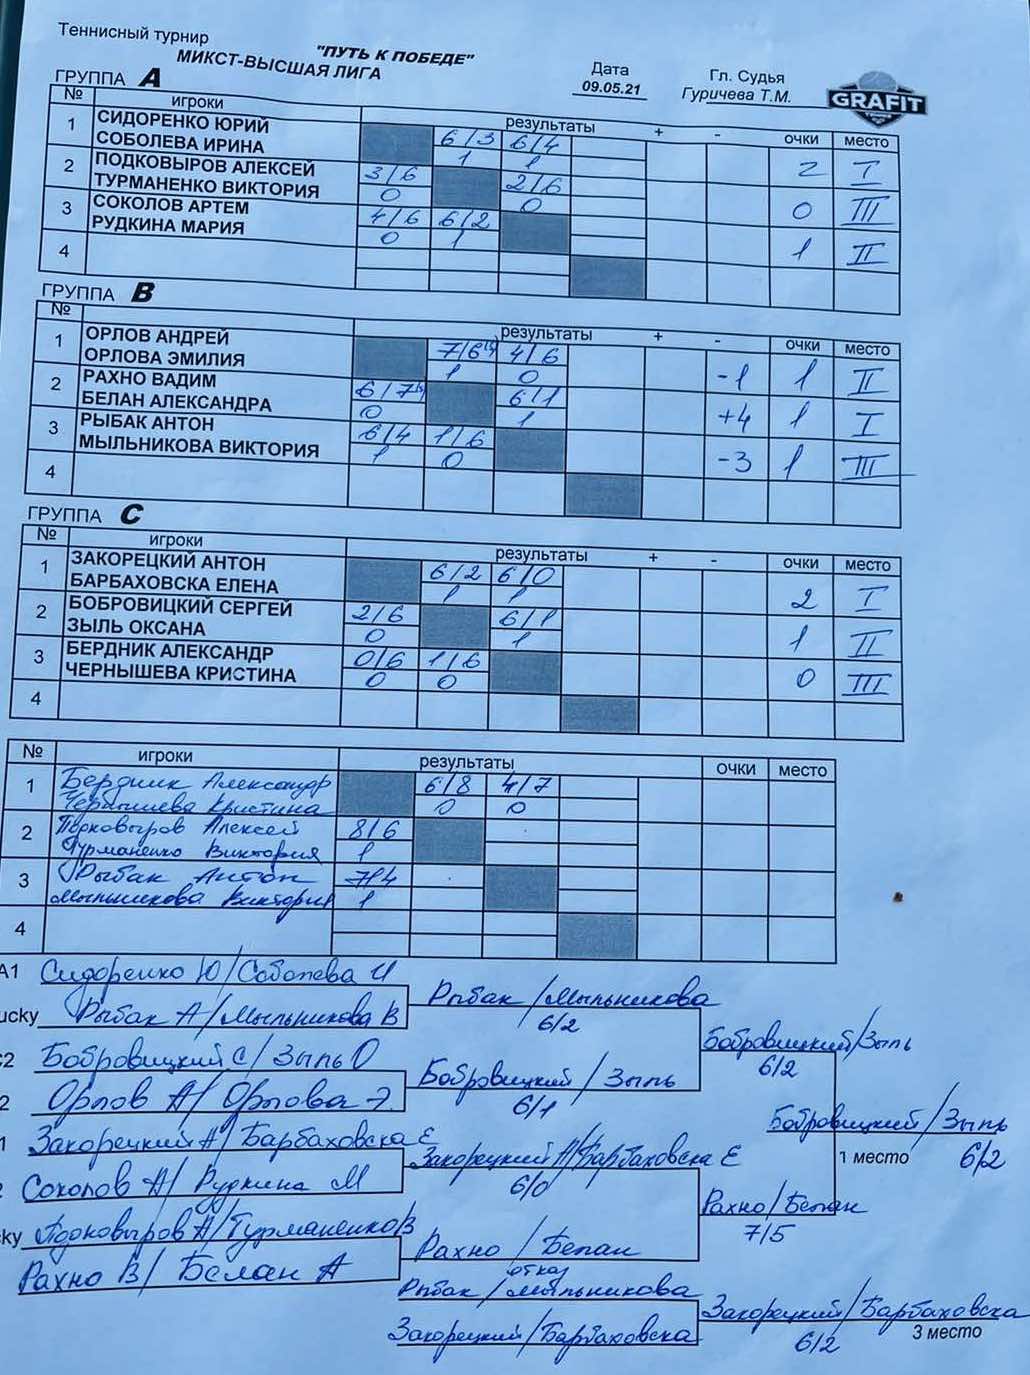 Теннисный турнир
"ПУТЬ К ПОБЕДЕ"
МИКСТ-ВЫСШАЯ ЛИГА
Дата
09.05.21
Гл. Судья
Гуричева Т.М.
GRAFIT
ГРУППА A
№ игроки результаты + - очки место
1 СИДОРЕНКО ЮРИЙ
СОБОЛЕВА ИРИНА
6/3 6/4
1 1 2 I
2 ПОДКОВЫРОВ АЛЕКСЕЙ
ТУРМАНЕНКО ВИКТОРИЯ
3/6 2/6
0 0 0 III
3 СОКОЛОВ АРТЕМ
РУДКИНА МАРИЯ
4/6 6/2
0 1 1 II
4
ГРУППА B
№ результаты + - очки место
1 ОРЛОВ АНДРЕЙ
ОРЛОВА ЭМИЛИЯ
7/6 4/6
1 0 -1 1 II
2 РАХНО ВАДИМ
БЕЛАН АЛЕКСАНДРА
6/7 6/1
0 1 +4 1 I
3 РЫБАК АНТОН
МЫЛЬНИКОВА ВИКТОРИЯ
6/4 1/6
1 0 -3 1 III
4
ГРУППА C
№ игроки результаты + - очки место
1 ЗАКОРЕЦКИЙ АНТОН
БАРБАХОВСКА ЕЛЕНА
6/2 6/0
1 1 2 I
2 БОБРОВИЦКИЙ СЕРГЕЙ
ЗЫЛЬ ОКСАНА
2/6 6/1
0 1 1 II
3 БЕРДНИК АЛЕКСАНДР
ЧЕРНЫШЕВА КРИСТИНА
0/6 1/6
0 0 0 III
4
№ игроки результаты очки место
1 Бердник Александр
Чернышева Кристина
6/8 4/7
0 0
2 Подковыров Алексей
Турманенко Виктория
8/6
1
3 Рыбак Антон
Мыльникова Виктория
7/4
1
4
A1 Сидоренко Ю/Соболева И
Рыбак /Мыльникова
6/2
ucky Рыбак А/Мыльникова В
Бобровицкий/Зыль
6/2
C2 Бобровицкий С/ Зыль О
Бобровицкий / Зыль
6/1
2 Орлов А/ Орлова Э.
Бобровицкий/Зыль
1 место 6/2
1 Закорецкий А/ Барбаховска Е
Закорецкий А/Барбаховска Е
6/0
2 Соколов А/ Рудкина М
Рахно/Белан
7/5
cky Подковыров А/Турманенко В
Рахно / Белан
отказ
Рахно В/ Белан А
Рыбак /Мыльникова
Закорецкий/Барбаховска
6/2 3 место
Закорецкий/Барбаховска